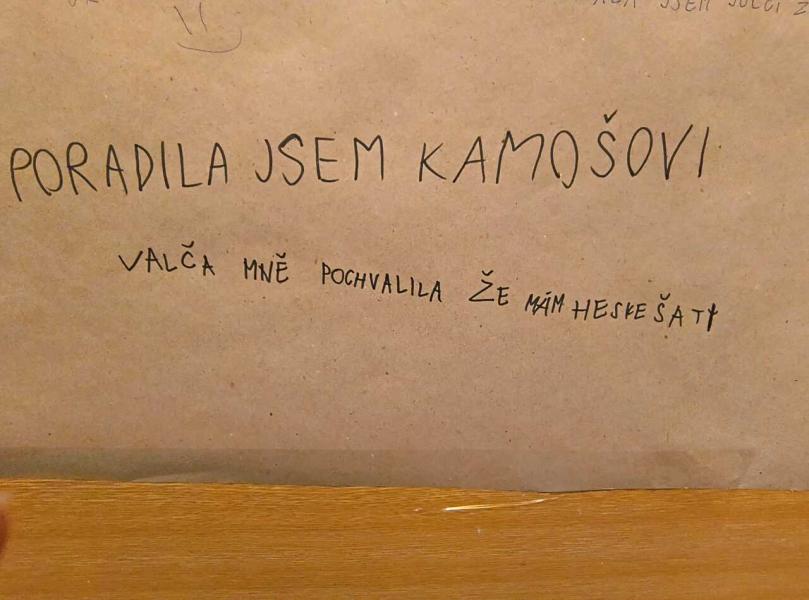 JSEM
PORADILA JSEM KAMOŠOVI
VALČA MNĚ POCHVALILA ŽE MÁM HESKE ŠATY